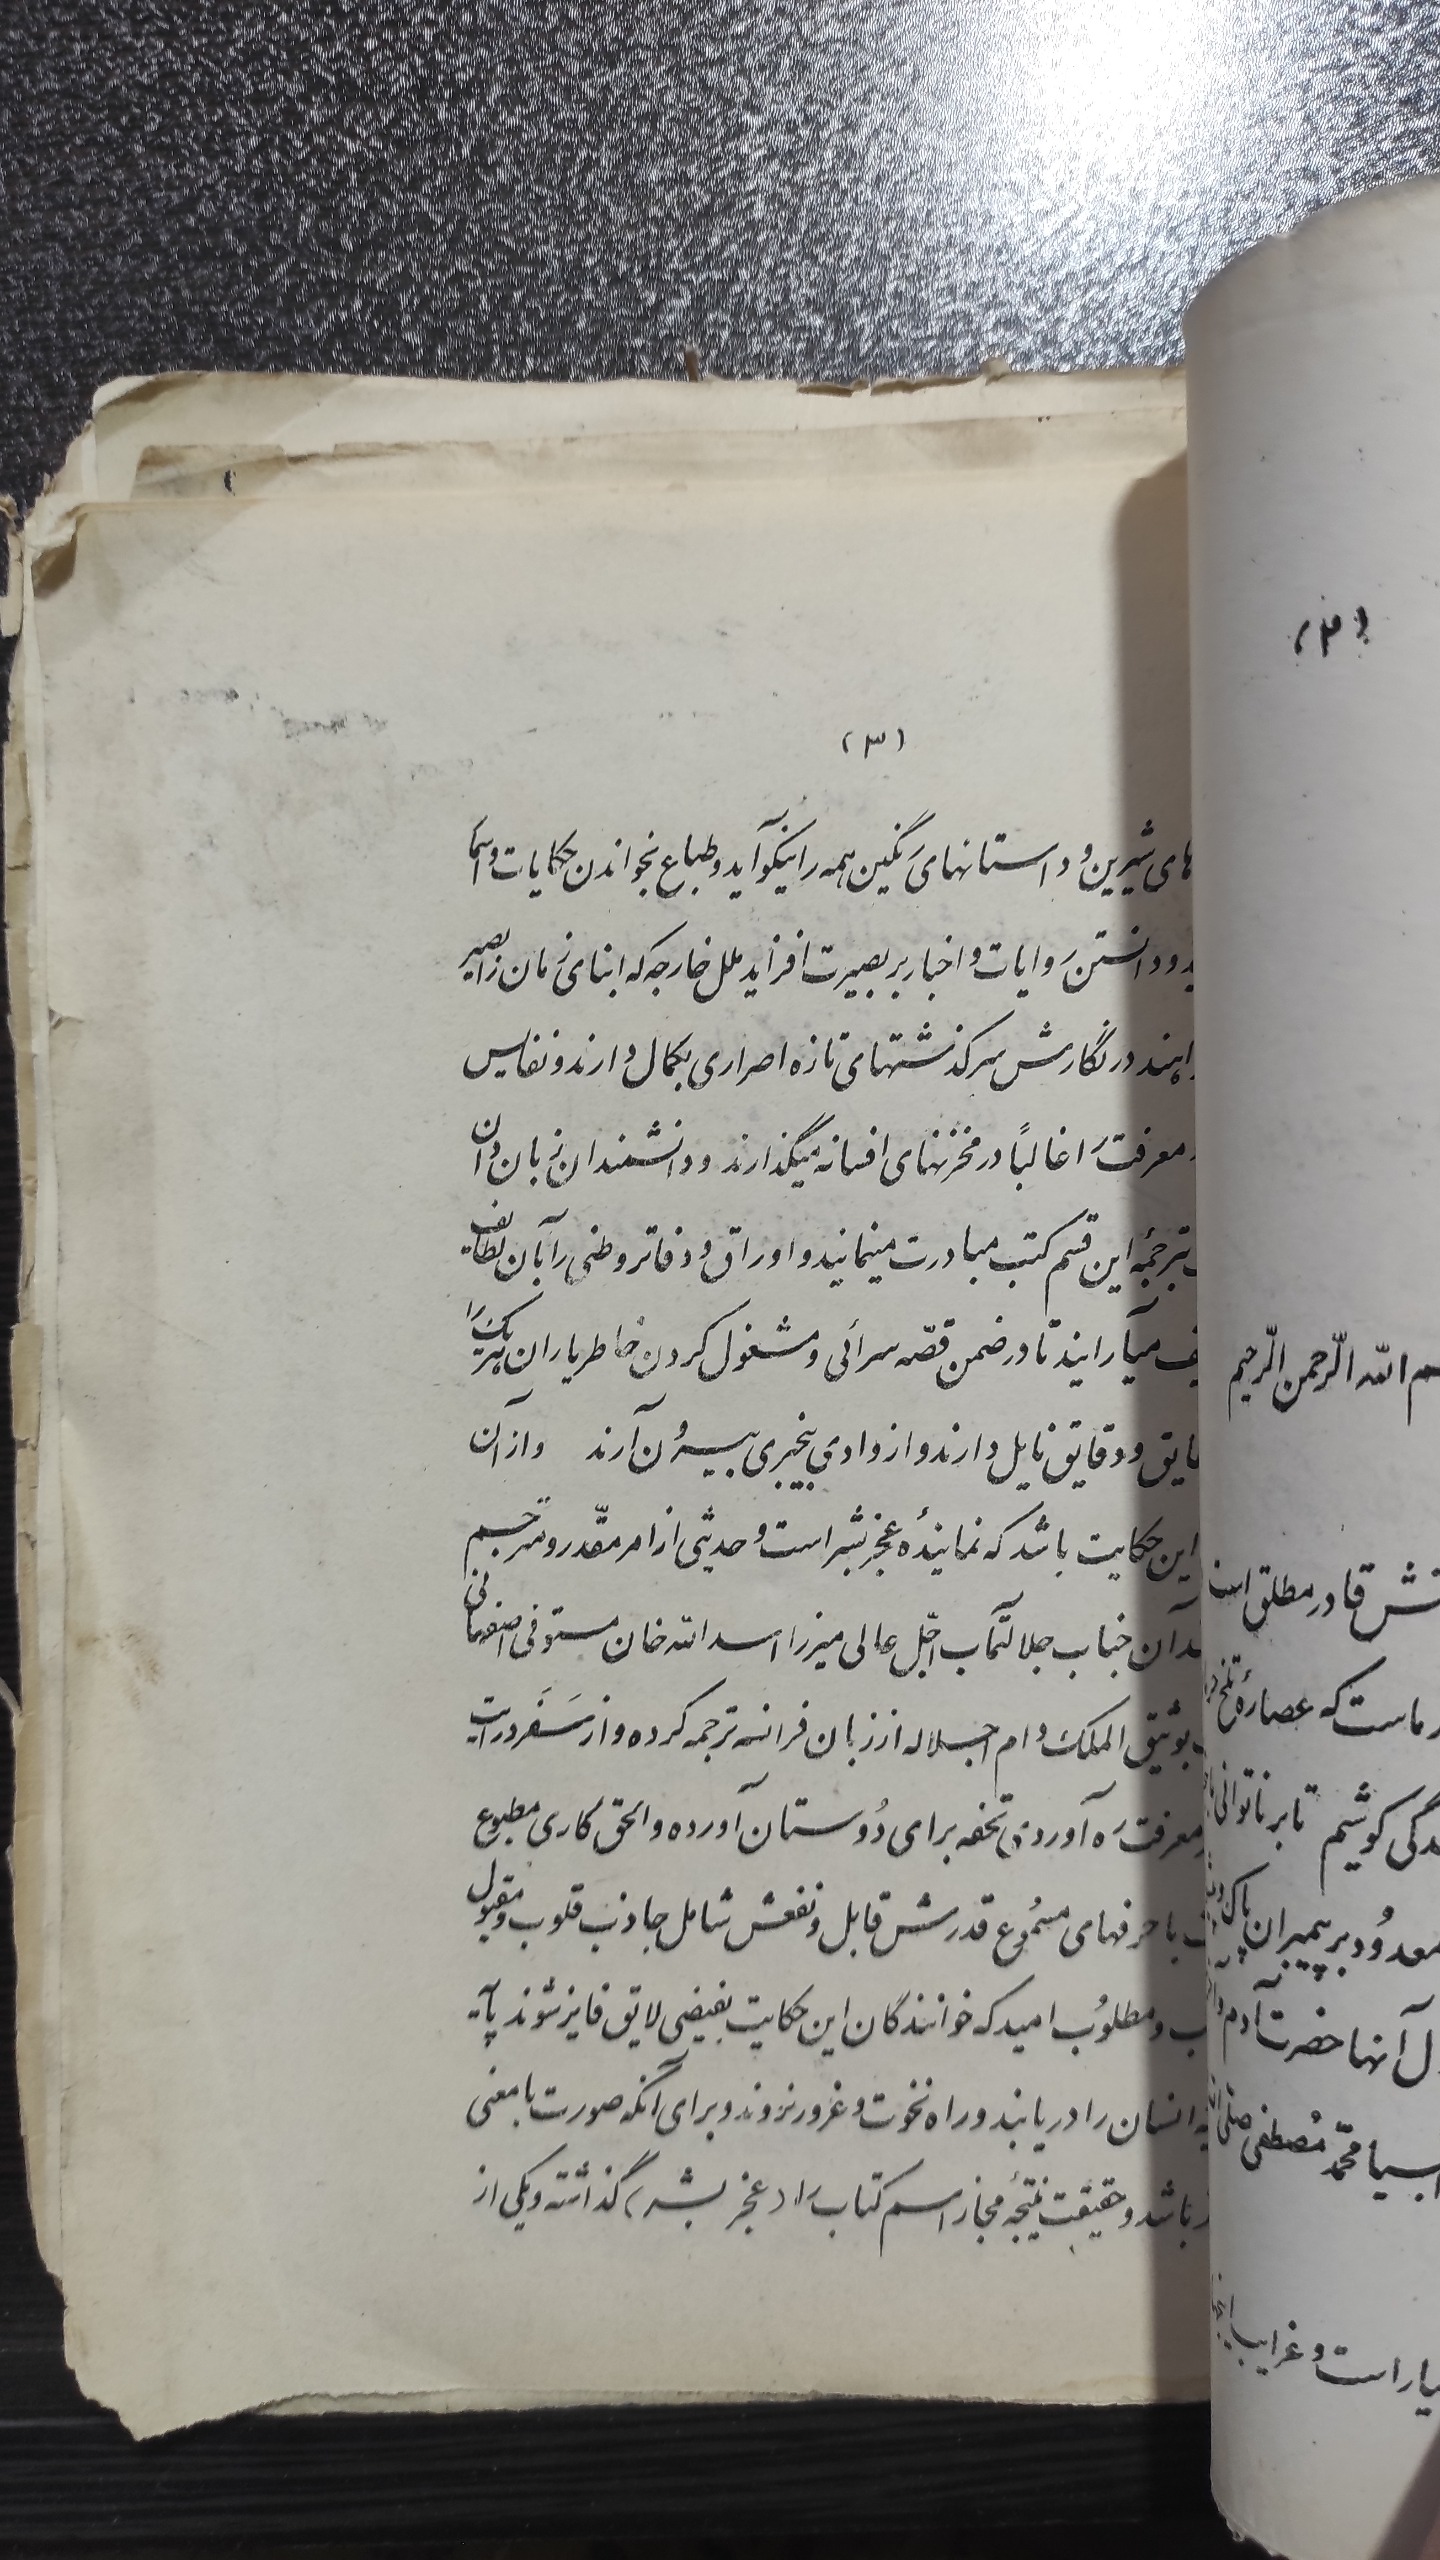 (۳)
های شیرین و داستانهای رنگین همه را نیکو آید و طباع بخواندن حکایات و اسما
و دانستن روایات و اخبار بر بصیرت افزاید ملل خارجه که ابنای زمان را بصیر
در نگارش سرگذشتهای تازه اصراری بکمال دارند و نفایس
معرفت را غالباً در مخزنهای افسانه میگذارند و دانشمندان زبان دان
بترجمهٔ این قسم کتب مبادرت مینمایند و اوراق و دفاتر وطنی را بآن لطایف
میآرایند تا در ضمن قصّه سرائی و مشغول کردن خاطر یاران هریک را
و دقایق نایل دارند و از وادی بیخبری بیرون آرند و از آن
این حکایت باشد که نمایندهٔ عجز بشر است و حدیثی از امر مقدّر و مترجم
آن جناب جلالتمآب اجلّ عالی میرزا اسدالله خان مستوفی اصفهانی
بوثیق الملک دام اجلاله از زبان فرانسه ترجمه کرده و از سَفَر درایت
معرفت ره آوردی تحفه برای دُوستان آورده و الحق کاری مطبوع
با حرفهای مسمُوع قدرش قابل و نفعش شامل جاذب قلوب و مقبول
و مطلوُب امید که خوانندگان این حکایت بفیضی لایق فایز شوند پایه
انسان را دریابند و راه نخوت و غرور نروند و برای آنکه صورت با معنی
باشد و حقیقت نتیجهٔ مجاز اسم کتاب را (عجز بشر) گذاشته و یکی از
(۲)
الله الرّحمن الرّحیم
قادر مطلق است
ماست که عصارهٔ تلخ
کوشیم تا بر ناتوانی
بر پیمبران پاک
آنها حضرت آدم
محمّد مُصطفی صلی
است و غرایب